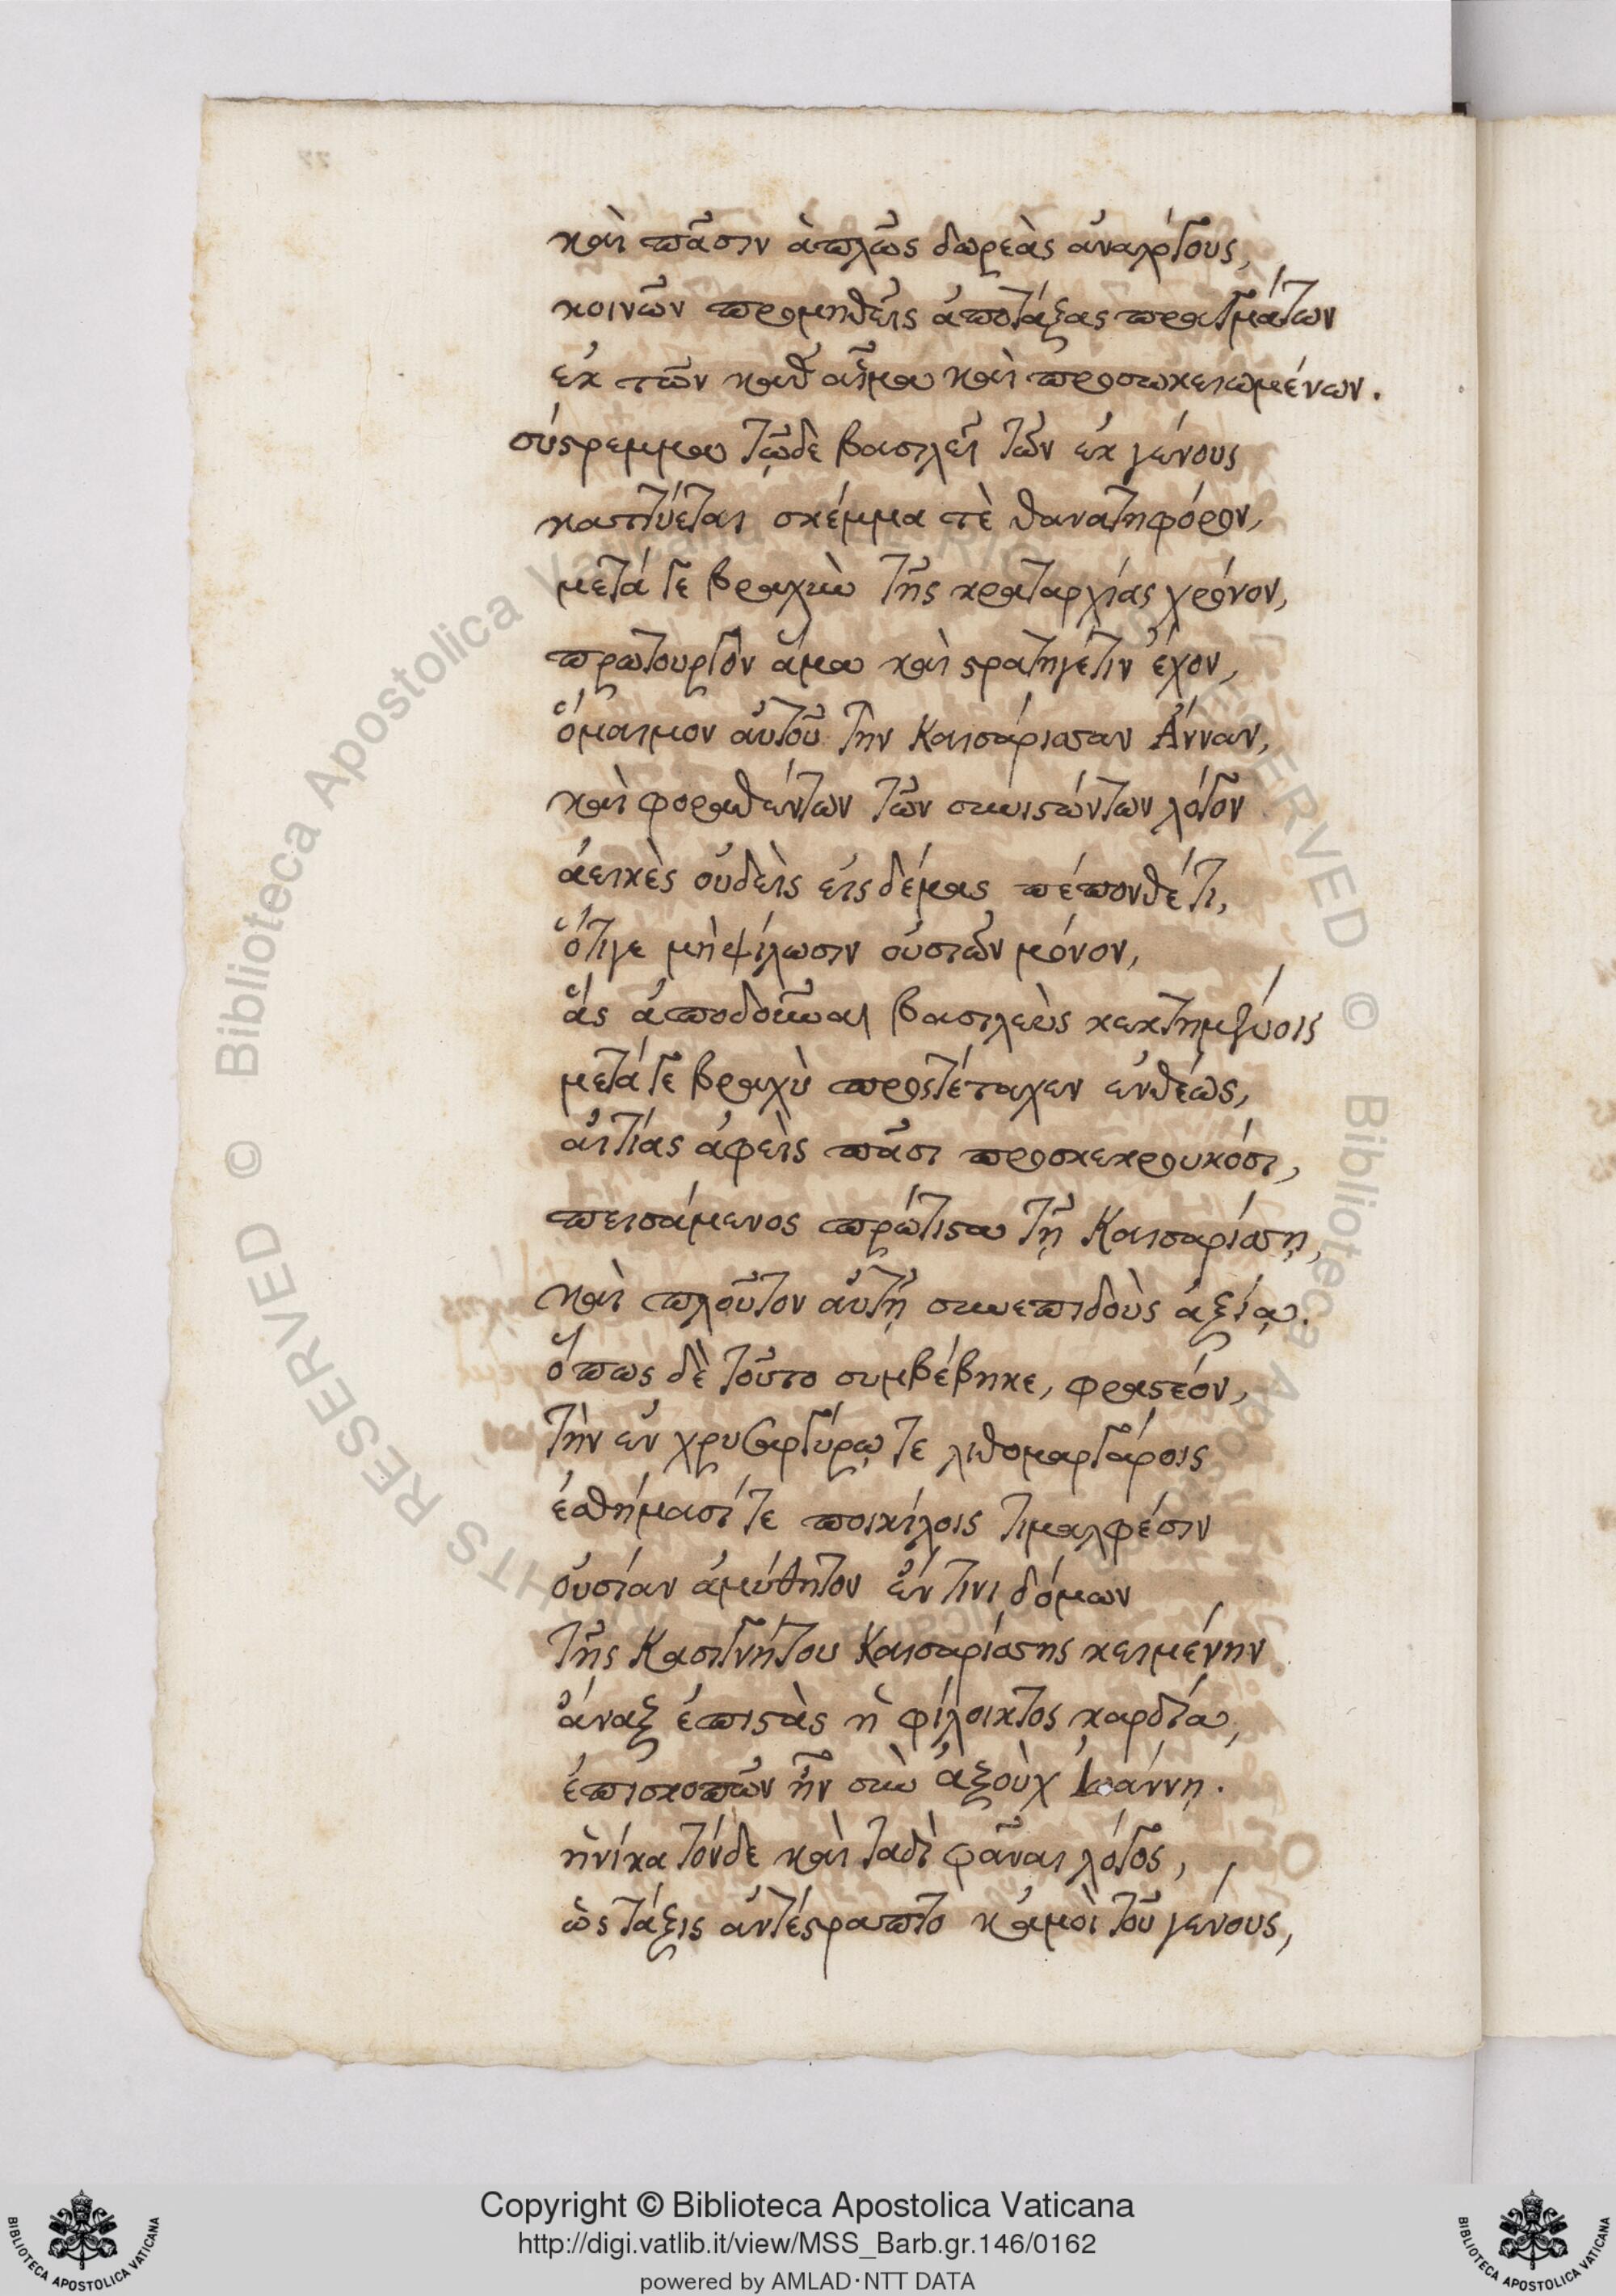 καὶ πᾶσιν ἁπλῶς δωρεὰς ἀναλόγους,
κοινῶν προμηθεῖς ἀποτάξας πραγμάτων
ἐκ τῶν καθ αἷμα καὶ προσωκειωμένων.
σύστρεμμα τῷδε βασιλεῖ τῶν ἐκ γένους
καττύεται σκέμμα τὲ θανατηφόρον,
μετά γε βραχὺν τῆς κραταρχίας χρόνον,
πρωτουργὸν ἅμα καὶ στρατηγέτιν ἔχον,
ὅμαιμον αὐτοῦ τὴν Καισάρισσαν Ἄνναν,
καὶ φοραθέντων τῶν συνιστώντων λόγον
ἀεικὲς οὐδεὶς εἰς δέμας πέπονθέ τι,
ὅτιγε μὴ ψίλωσιν οὐσιῶν μόνον,
ἃς ἀποδοῦναι βασιλεὺς κεκτημένοις
μετά γε βραχὺ προστέταχεν ἐνθέως,
αἰτίας ἀφεὶς πᾶσι προσκεκρουκόσι,
πεισάμενος πρώτιστα τῇ Καισαρίσσῃ,
καὶ πλοῦτον αὐτῇ συνεπιδοὺς ἀξίᾳ.
ὅπως δὲ τοῦτο συμβέβηκε, φραστέον,
τὴν ἐν χρυσαργύρῳ τε λιθομαργάροις
ἐσθήμασί τε ποικίλοις τιμαλφέσιν
οὐσίαν ἀμύθητον ἔν τινι δόμων
τῆς Κασιγνήτου Καισαρίσσης κειμένην
ἄναξ ἐπιστὰς ἡ φίλοικτος καρδία,
ἐπισκοπῶν ἦν σὺν ἀξοὺχ Ἰωάννῃ.
ἡνίκα τόνδε καὶ ταδὶ φᾶναι λόγος,
ὡς τάξις ἀντέστραπτο κἀμοὶ τοῦ γένους,
Copyright © Biblioteca Apostolica Vaticana
http://digi.vatlib.it/view/MSS_Barb.gr.146/0162
powered by AMLAD·NTT DATA